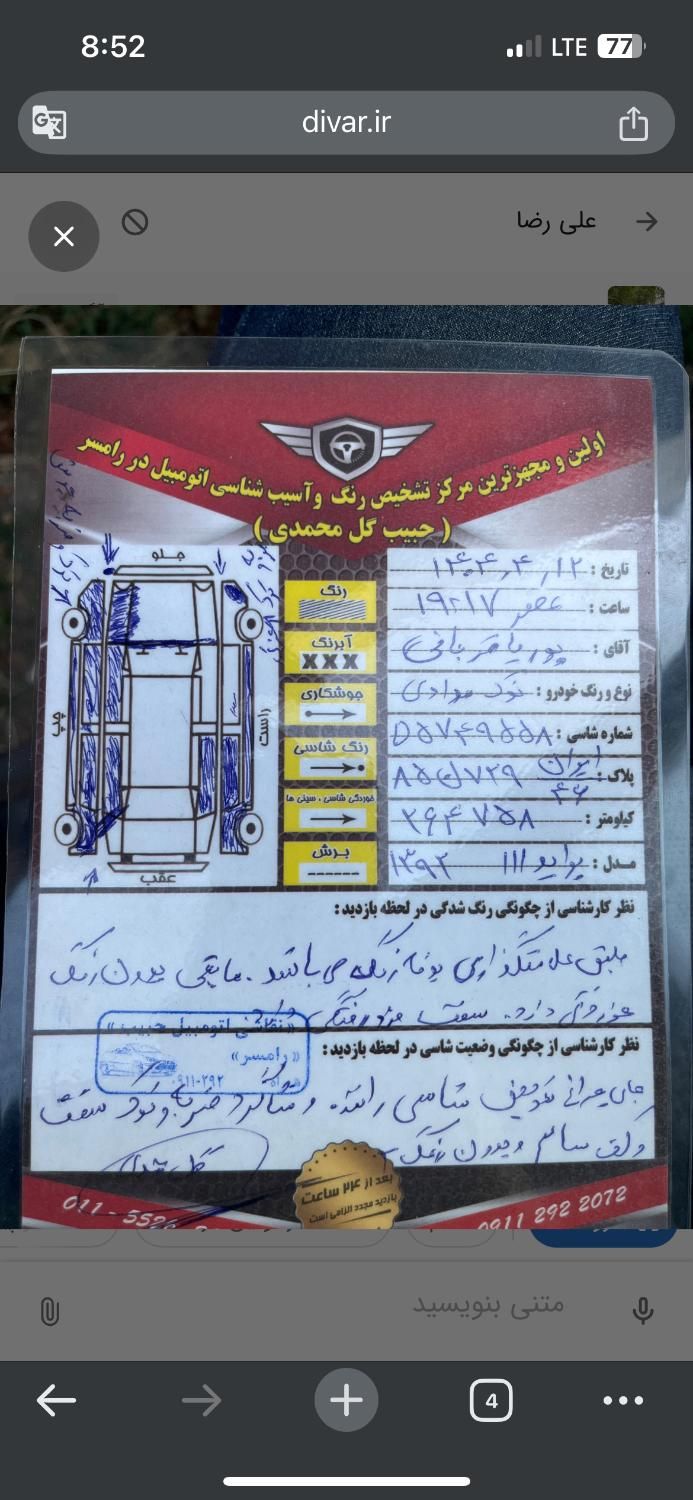 8:52
LTE 77
divar.ir
علی رضا
اولین و مجهزترین مرکز تشخیص رنگ وآسیب شناسی اتومبیل در رامسر
( حبیب گل محمدی )
جلو
چپ
راست
عقب
رنگ
آبرنگ
XXX
جوشکاری
رنگ شاسی
خوردگی شاسی ، سینی ها
برش
تاریخ : ۱۴۰۴,۴,۱۲
ساعت : ۱۹:۱۷ عصر
آقای : پوریا قربانی
نوع و رنگ خودرو : نوک مدادی
شماره شاسی : D۵۷۴۹۵۵۸
پلاک : ایران ۴۶
کیلومتر : ۲۶۴۷۵۸
مدل : پراید ۱۱۱ ۱۳۹۲
نظر کارشناسی از چگونگی رنگ شدگی در لحظه بازدید :
طبق علامتگذاری می باشد . مابقی بدون رنگ
دارد . سقف
«نقاشی اتومبیل حبیب»
«رامسر»
نظر کارشناسی از چگونگی وضعیت شاسی در لحظه بازدید :
شاسی راننده و شاگرد سقف
سالم و بدون رنگ
بعد از ۲۴ ساعت
بازدید مجدد الزامی است
0911 292 2072
متنی بنویسید
4